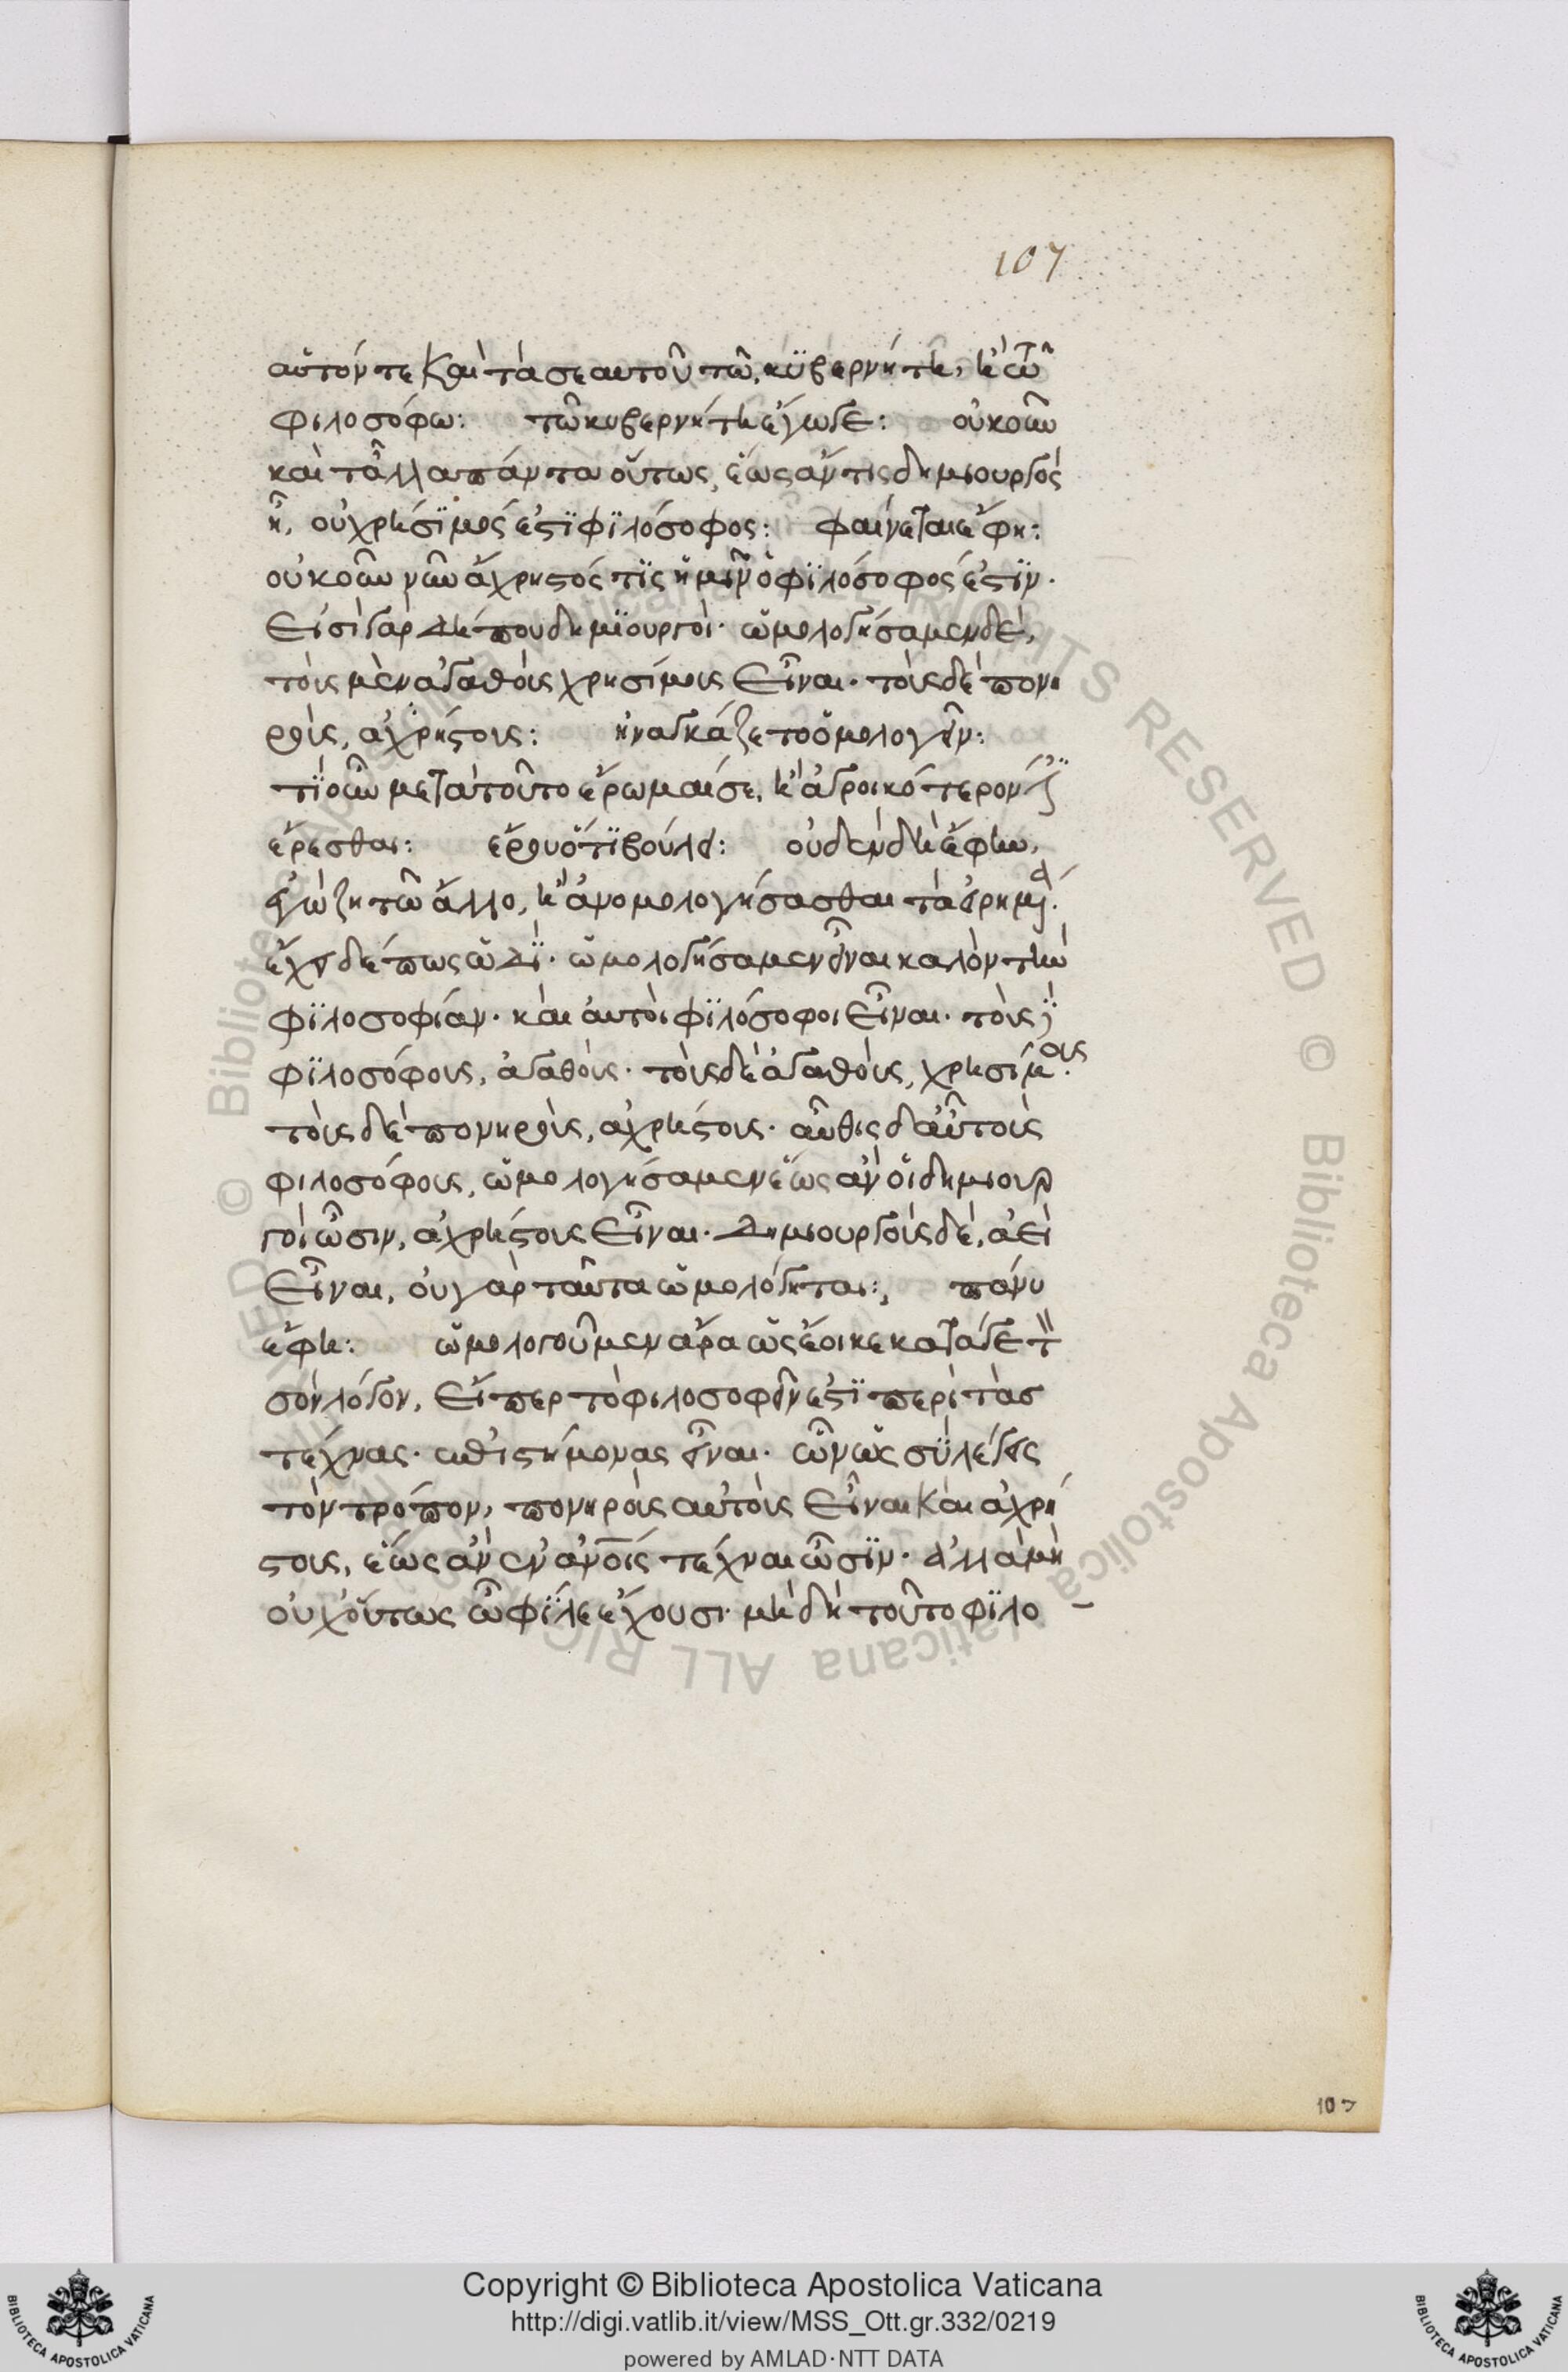 107
αὐτόν τε καὶ τὰ σεαυτοῦ τῶ κυβερνήτη, ἢ τῶ
φιλοσόφω: τῶ κυβερνήτη ἔγωγε: οὐκοῦν
καὶ τἆλλα πάντα οὕτως, ἕως ἄν τις δημιουργὸς
ἦ, οὐ χρήσιμός ἐστι φιλόσοφος: φαίνεται ἔφη:
οὐκοῦν νῦν ἄχρηστός τις ἡμῖν ὁ φιλόσοφός ἐστιν.
Εἰσὶ γὰρ δή που δημιουργοί. ὡμολογήσαμεν δὲ,
τοὺς μὲν ἀγαθοὺς χρησίμους εἶναι. τοὺς δὲ πονη
ροὺς, ἀχρήστους: ἠναγκάζετο ὁμολογεῖν:
τί οὖν μετὰ τοῦτο ἔρωμαί σε, ἢ ἀγροικότερον ἐστὶ
ἔρεσθαι: ἐροῦ ὅτι βούλει: οὐδὲν δὴ ἔφην,
ἐγὼ ζητῶ ἄλλο, ἢ ἀνομολογήσασθαι τὰ εἰρημένα.
ἔχει δέ πως ὡδί. ὡμολογήσαμεν εἶναι καλὸν τὴν
φιλοσοφίαν. καὶ αὐτοὶ φιλόσοφοι εἶναι. τοὺς δὲ
φιλοσόφους, ἀγαθούς. τοὺς δὲ ἀγαθοὺς, χρησίμους.
τοὺς δὲ πονηροὺς, ἀχρήστους. αὖθις δ' αὖ τοὺς
φιλοσόφους, ὡμολογήσαμεν ἕως ἂν οἱ δημιουρ
γοὶ ὦσιν, ἀχρήστους εἶναι. Δημιουργοὺς δὲ, ἀεὶ
εἶναι, οὐ γὰρ ταῦτα ὡμολόγηται:, πάνυ
ἔφη: ὡμολογοῦμεν ἄρα ὡς ἔοικε κατά γε τὸν
σὸν λόγον, εἴπερ τὸ φιλοσοφεῖν ἐστὶ περὶ τὰς
τέχνας. ἐπιστήμονας εἶναι. ὧν ὡς σὺ λέγεις
τὸν τρόπον, πονηροὺς αὐτοὺς εἶναι καὶ ἀχρή
στους, ἕως ἂν ἐν ἀνοις τέχναι ὦσιν. Ἀλλὰ μὴ
οὐχ οὕτως ὦ φίλε ἔχουσι. μὴ δὴ τοῦτο φιλο
107
Copyright © Biblioteca Apostolica Vaticana
http://digi.vatlib.it/view/MSS_Ott.gr.332/0219
powered by AMLAD·NTT DATA
BIBLIOTECA APOSTOLICA VATICANA
BIBLIOTECA APOSTOLICA VATICANA
© Biblioteca Apostolica Vaticana ALL RIGHTS RESERVED